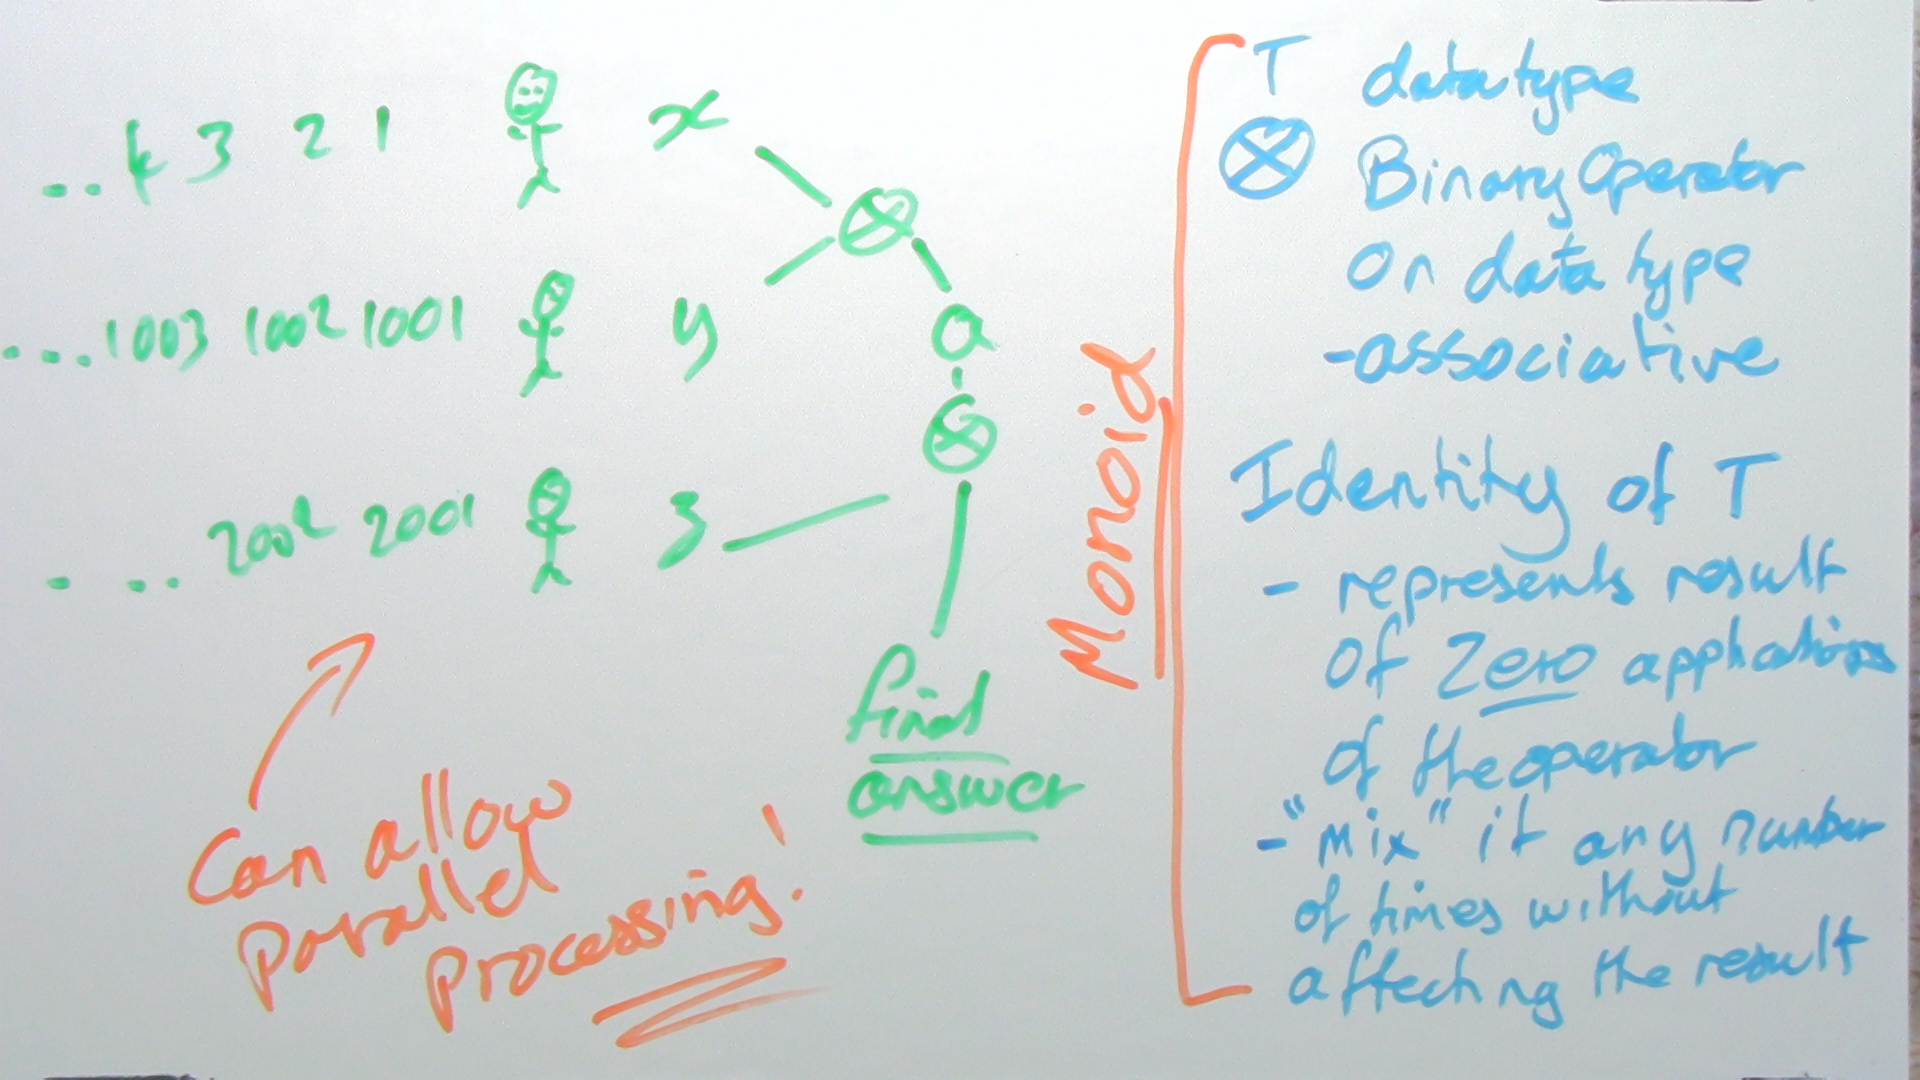 ... 4 3 2 1 x
... 1003 1002 1001 y
. ... 2002 2001 z
⊗
a
⊗
final
answer
Can allow
parallel
processing!
Monoid
T datatype
⊗ Binary Operator
on data type
- associative
Identity of T
- represents result
of Zero applications
of the operator
- "mix" it any number
of times without
affecting the result